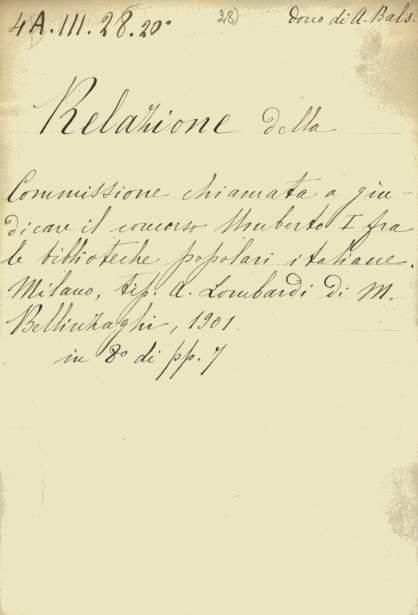 4A.III.28.20°
28)
dono di A. Bals.
Relazione della
Commissione chiamata a giu-
dicare il concorso Umberto I fra
le biblioteche popolari italiane.
Milano, tip. A. Lombardi di M.
Bellinzaghi, 1901
in 8° di pp. 7